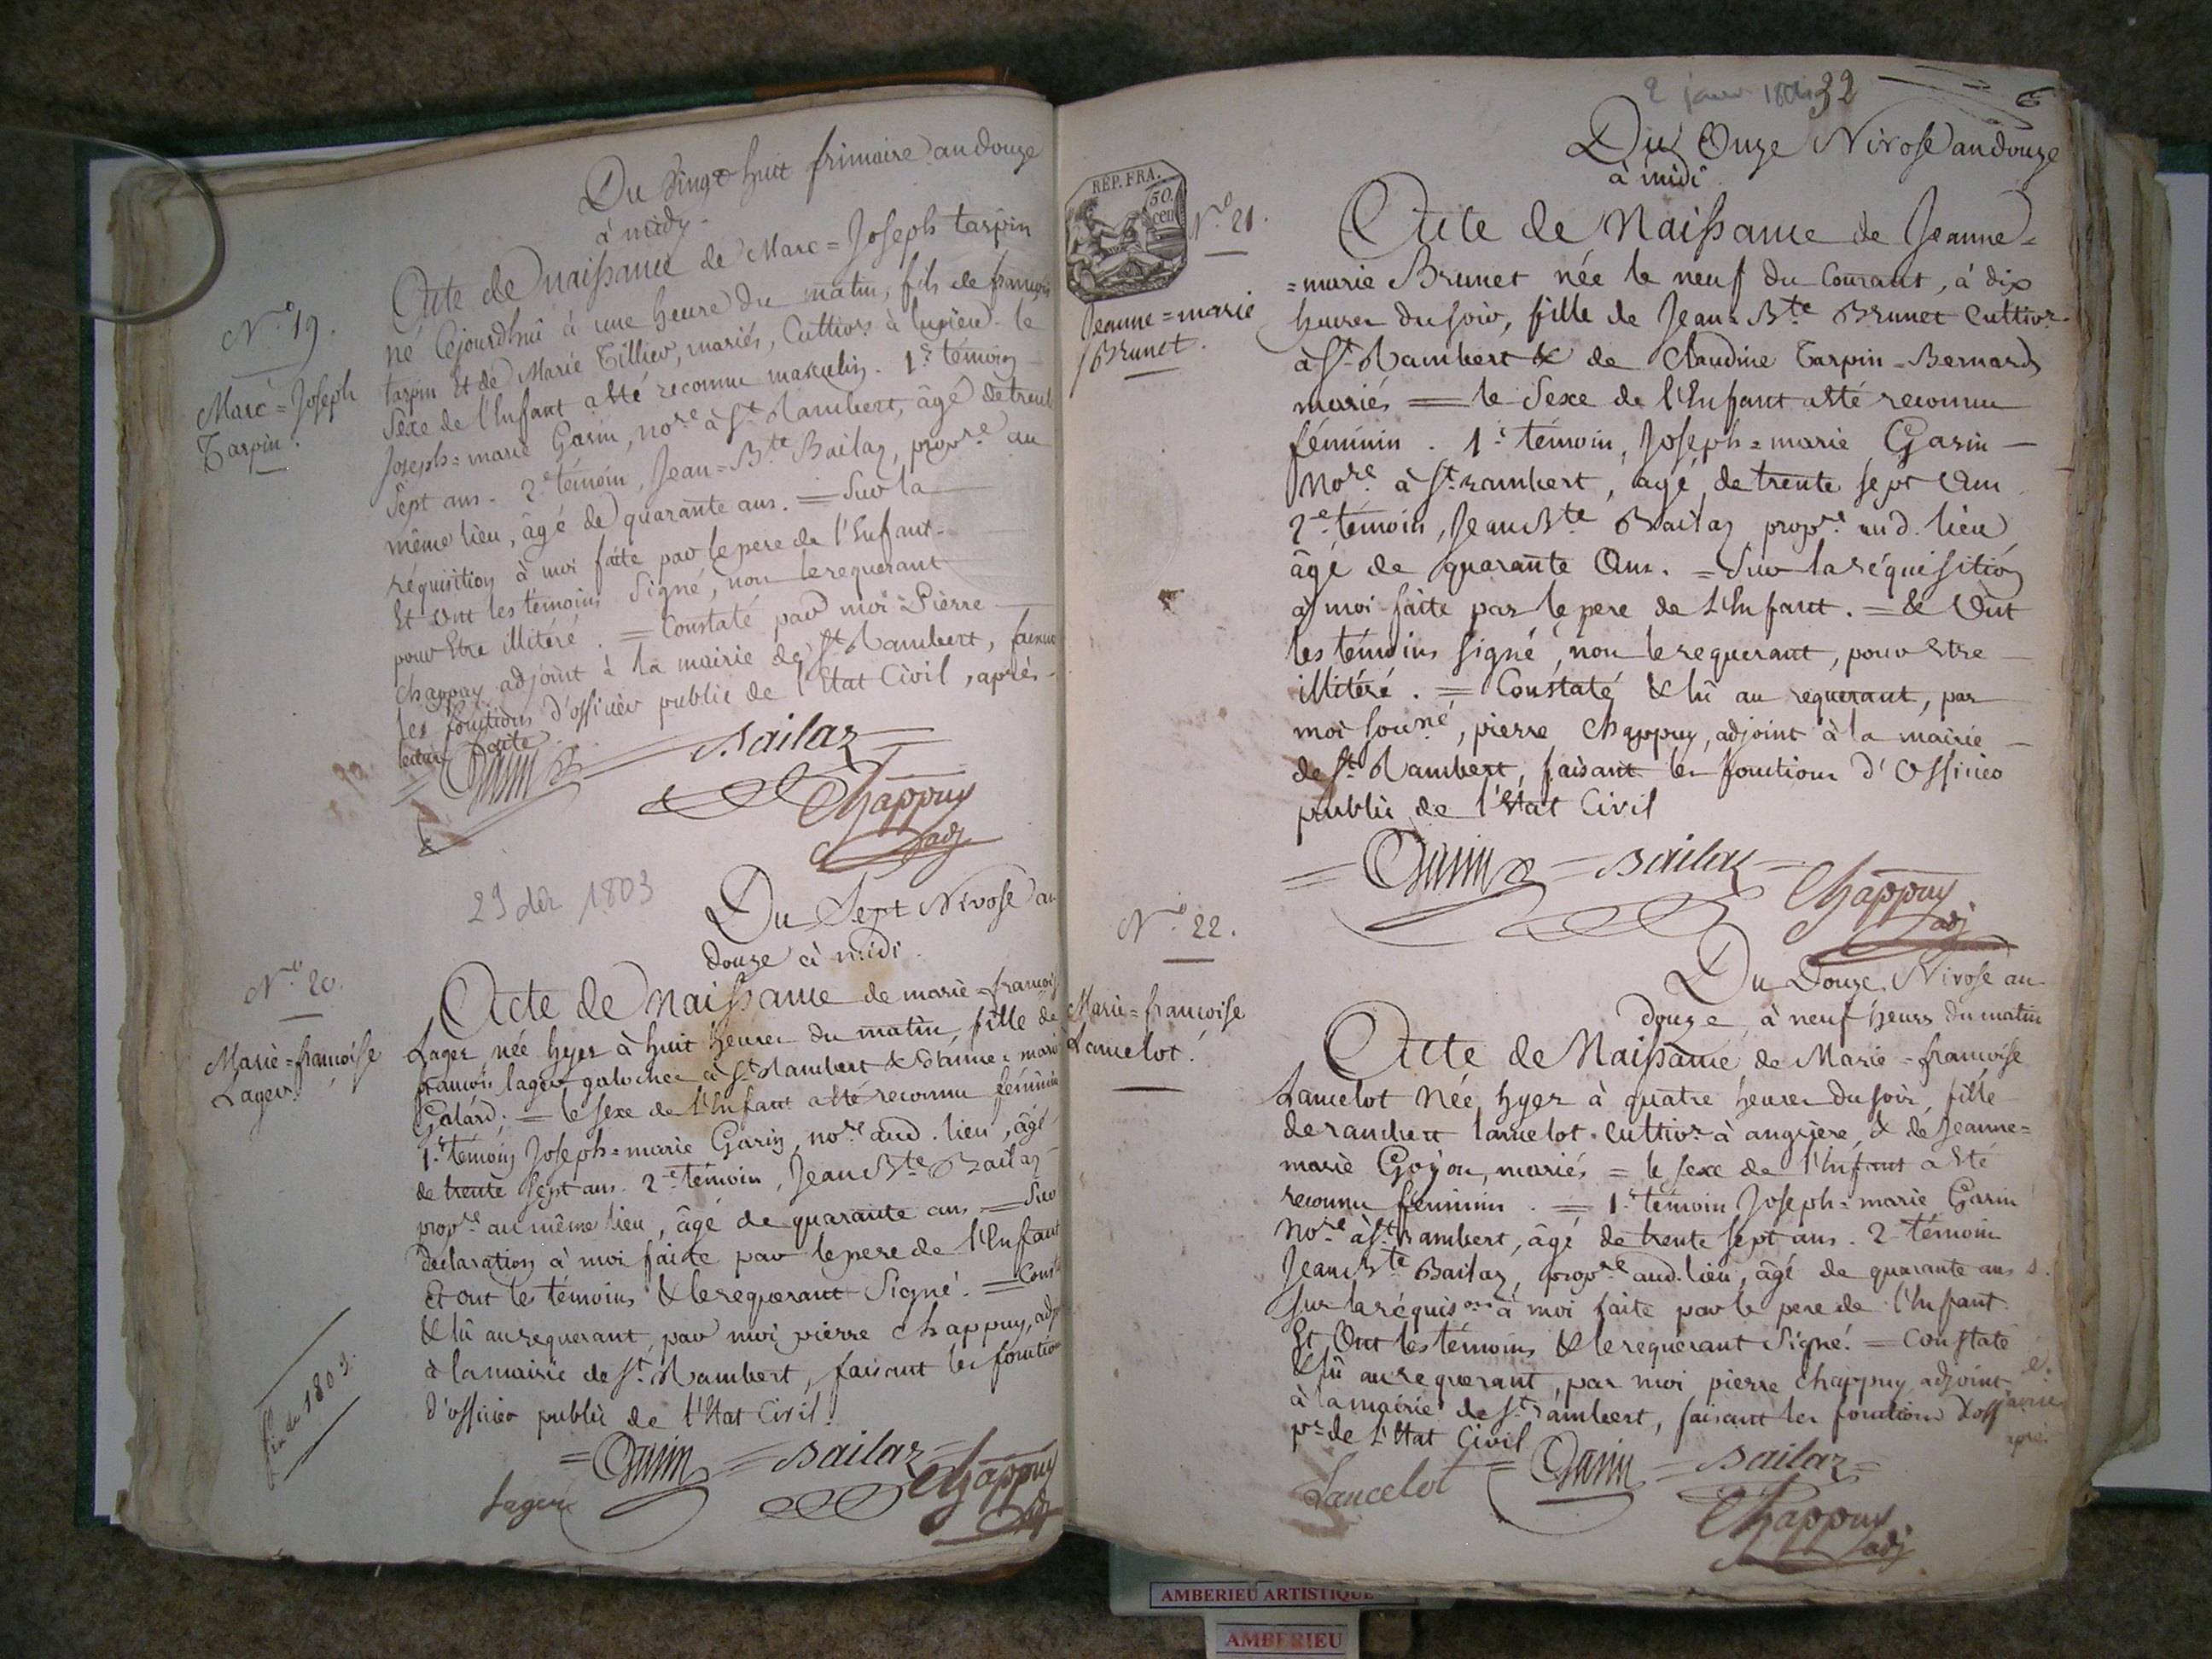 Du vingt huit frimaire an douze
à midy.
N.o 19.
Marc=Joseph
Tarpin.
Acte de naissance de Marc=Joseph tarpin
né Cejourdhui à une heure du matin, fils de françois
tarpin Et de Marie Tillier, mariés, Cultivrs à lupieu. le
Sexe de l'Enfant a Eté reconnu masculin. 1r témoin
Joseph=marie Garin, nore à St Rambert, âgé de trente
Sept ans. 2e témoin, Jean=Bte Bailaz, propre au
même lieu, âgé de quarante ans. = Sur la
réquisition à moi faite par le pere de l'Enfant.
Et Ont les témoins Signé, non le requerant
pour Etre illitéré. = Constaté par moi Pierre
Chappuy adjoint à la mairie de St Rambert, faisant
les fonctions d'officier public de l'Etat Civil, après
lecture faite.
Garin = Bailaz =
Chappuy
adj
29 déc 1803
Du Sept Nivose an
douze à midi.
N.o 20.
Marie=francoise
Lager.
Acte de Naissance de marie=françoise
Lager née hyer à huit heures du matin, fille de
françois lager galocher à St Rambert & d'anne=marie
Galard; = le sexe de l'Enfant a Eté reconnu féminin
1r témoin Joseph=marie Garin, nore aud. lieu, âgé
de trente sept ans. 2e témoin, Jean Bte Bailaz
propre au même lieu, âgé de quarante ans = Sur
déclaration à moi faite par le pere de l'Enfant
Et ont les témoins & le requerant Signé. = Consté
& lû au requerant, par moi pierre Chappuy, adjt
à la mairie de St Rambert, faisant les fonctions
d'officier public de l'Etat Civil.
fin de 1803.
Lager = Garin = Bailaz =
Chappuy
adj
2 janv 1804
32
6
Du Onze Nivose an douze
à midi
REP. FRA.
50.
cen
N.o 21.
Jeanne=marie
Brunet.
Acte de Naissance de Jeanne=
=marie Brunet née le neuf du Courant, à dix
heures du soir, fille de Jean=Bte Brunet Cultivr
à St Rambert & de Claudine Tarpin=Bernard
mariés = le Sexe de l'Enfant a Eté reconnu
féminin. 1r témoin, Joseph=marie Garin
Nore à St rambert, âgé de trente sept Ans
2e témoin, Jean Bte Bailaz propre aud. lieu
âgé de quarante Ans. = Sur la réquisition
à moi faite par le pere de L'Enfant. = & Ont
les témoins signé, non le requerant, pour Etre
illitéré. = Constaté & lû au requerant, par
moi Sousné, pierre Chappuy, adjoint à la mairie
de St Rambert, faisant les fonctions d'Officier
public de l'Etat Civil
= Garin = Bailaz =
Chappuy
adj
N.o 22.
Marie=francoise
Lancelot.
Du Douze Nivose an
douze à neuf heures du matin
Acte de Naissance de Marie=francoise
Lancelot Née hyer à quatre heures du soir, fille
de rambert lancelot Cultivr à angrière, & de Jeanne=
marie Goyon, mariés = le sexe de l'Enfant a Eté
reconnu féminin. = 1r témoin Joseph=marie Garin
Nore à St rambert, âgé de trente sept ans. 2e témoin
Jean Bte Bailaz, propre aud. lieu, âgé de quarante ans
sur la réquison à moi faite par le pere de l'Enfant.
Et Ont les témoins & le requérant Signé. = Constaté
& lû au requerant, par moi pierre Chappuy adjoint
à la mairie de St rambert, faisant les fonctions d'off
pc de L'Etat Civil
Lancelot = Garin = Bailaz =
Chappuy
adj
AMBERIEU ARTISTIQUE
AMBERIEU